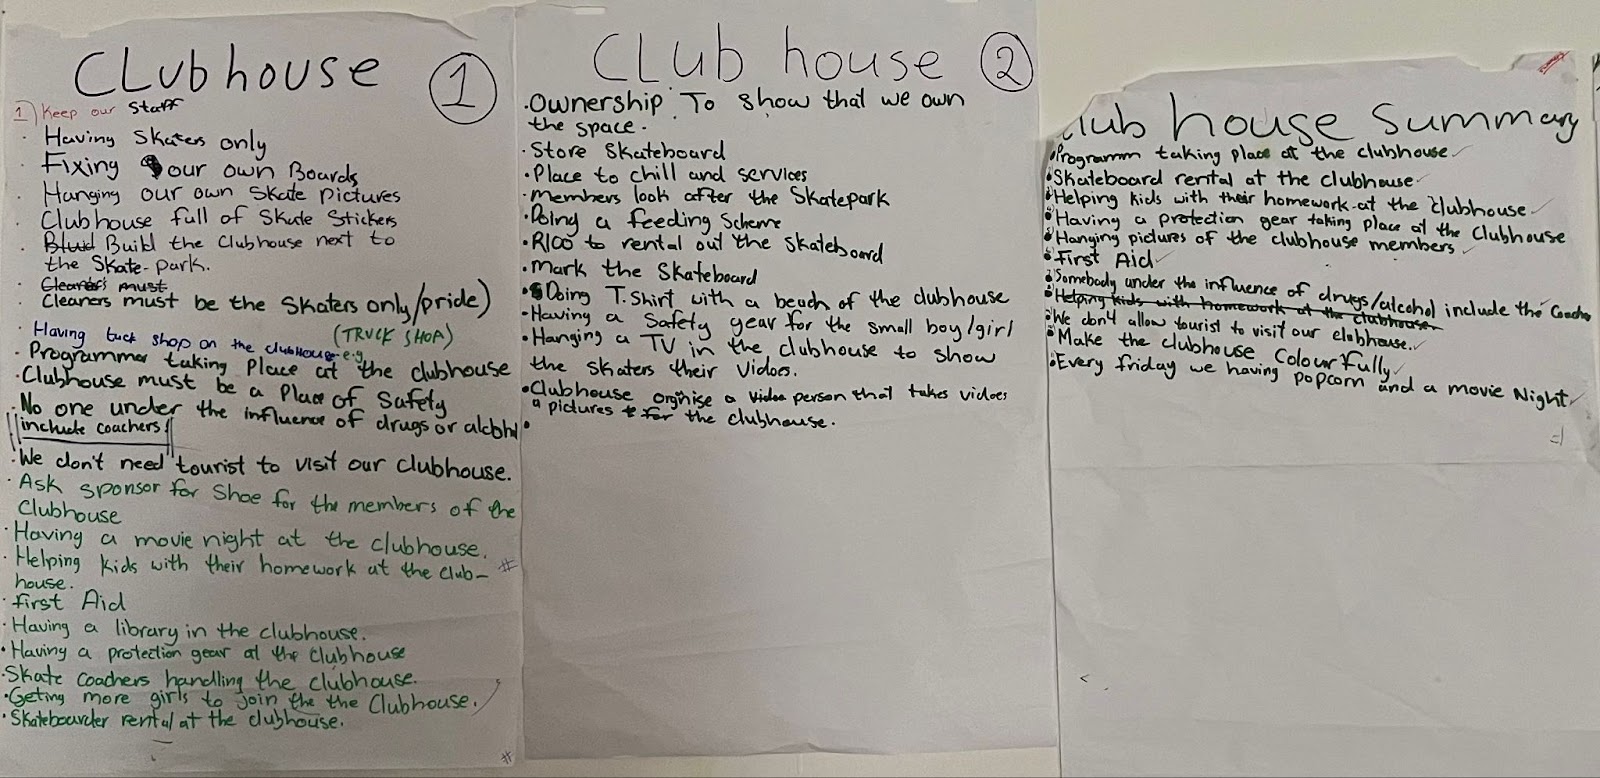 CLubhouse 1
1) Keep our Staff
· Having Skaters only
· Fixing our own Boards
· Hanging our own Skate pictures
· Clubhouse full of Skate Stickers
· Build the Clubhouse next to
the Skate-park.
· Cleaners must
· Cleaners must be the Skaters only/pride)
· Having tuck shop on the clubHouse e.g
(TRUCK SHOA)
· Programmer taking Place at the clubhouse
· Clubhouse must be a Place of Safety
· No one under the influence of drugs or alcohol
include coachers!
· We don't need tourist to visit our clubhouse.
· Ask sponsor for Shoe for the members of the
Clubhouse
· Having a movie night at the clubhouse.
· Helping kids with their homework at the club- #
house.
· first Aid
· Having a library in the clubhouse.
· Having a protection gear at the Clubhouse
· Skate coachers handling the clubhouse.
· Geting more girls to join the the Clubhouse.
· Skateboarder rental at the clubhouse.
#
CLub house 2
· Ownership To show that we own
the space.
· Store Skateboard
· Place to chill and services
· Members look after the Skatepark
· Doing a feeding Scheme
· R100 to rental out the skateboard
· Mark the Skateboard
· Doing T.Shirt with a beach of the clubhouse
· Having a Safety gear for the small boy/girl
· Hanging a TV in the clubhouse to show
the skaters their Vidoes.
· Clubhouse orginise a video person that takes vidoes
pictures for the clubhouse.
Club house Summary
· Programm taking place at the clubhouse
· Skateboard rental at the clubhouse
· Helping kids with their homework at the clubhouse
· Having a protection gear taking place at the Clubhouse
· Hanging pictures of the clubhouse members
· first Aid
· Somebody under the influence of drugs/alcohol include the Coacher
· Helping kids with homework at the clubhouse.
· We don't allow tourist to visit our clubhouse.
· Make the clubhouse Colourfully
· Every friday we having popcorn and a movie Night